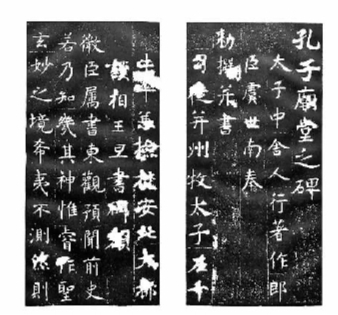 孔子廟堂之碑
太子中舍人行著作郎
臣虞世南奉
勅撰并書
司徒并州牧太子左千
牛率兼檢校安北大都
護相王旦書碑額
微臣属書東觀預聞前史
若乃知幾其神惟睿作聖
玄妙之境希夷不測然則